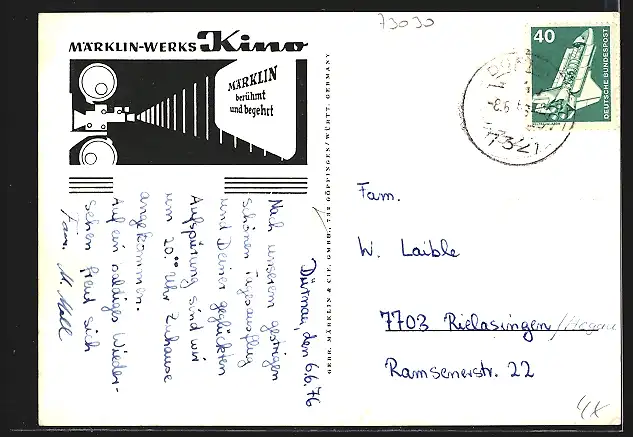 73030
MÄRKLIN-WERKS Kino
MÄRKLIN
berühmt
und begehrt
40
DEUTSCHE BUNDESPOST
-8.6.
7321
GEBR. MÄRKLIN & CIE. GMBH., 732 GÖPPINGEN/WÜRTT. GERMANY
Dürnau, den 6.6.76
Nach unserem gestrigen
schönen Tagesausflug
und Deiner geglückten
Aufspürung sind wir
um 20.00 Uhr Zuhause
angekommen.
Auf ein baldiges Wieder-
sehen freut sich
Fam. M. Moll
Fam.
W. Laible
7703 Rielasingen
Ramsenerstr. 22
4x